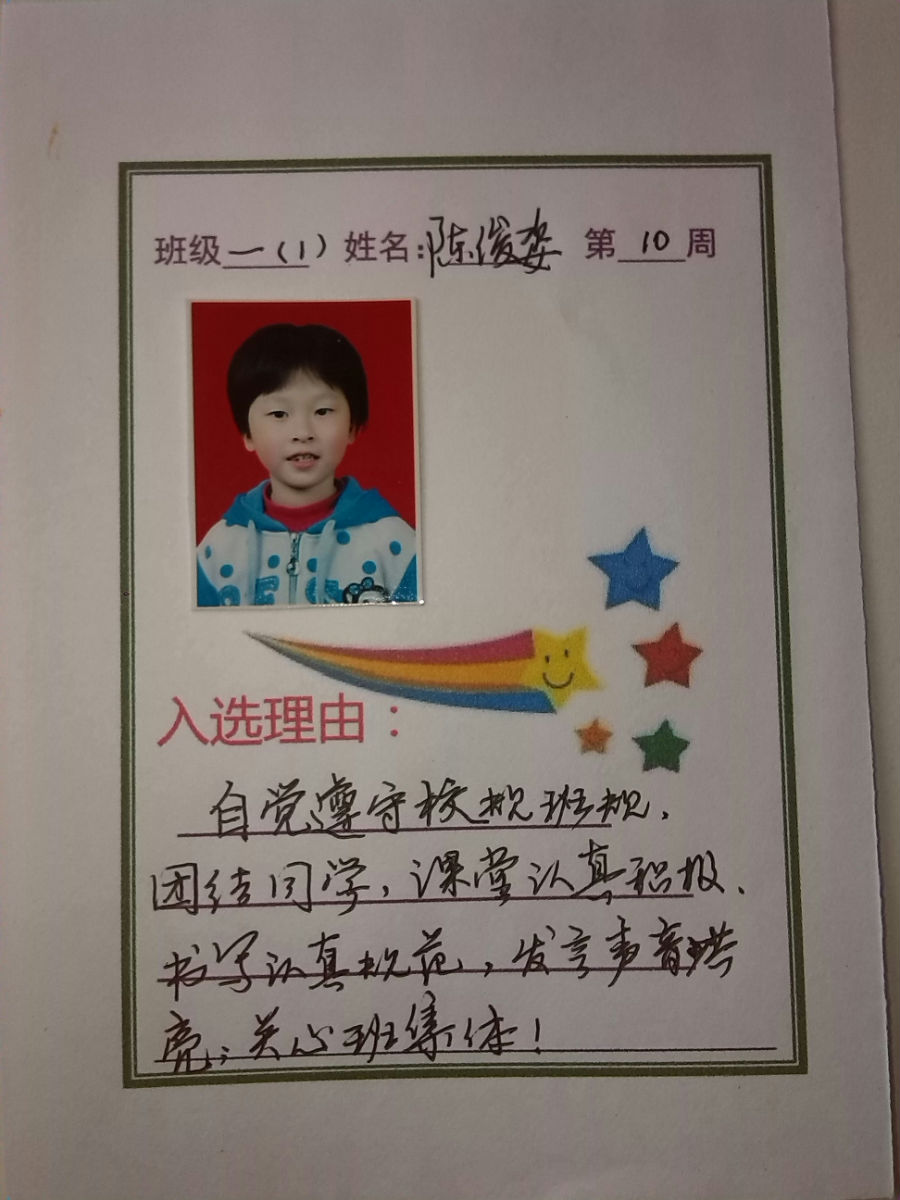 班级一(1) 姓名:陈俊姿 第10周
入选理由：
自觉遵守校规班规，
团结同学，课堂认真积极、
书写认真规范，发言声音洪
亮，关心班集体！